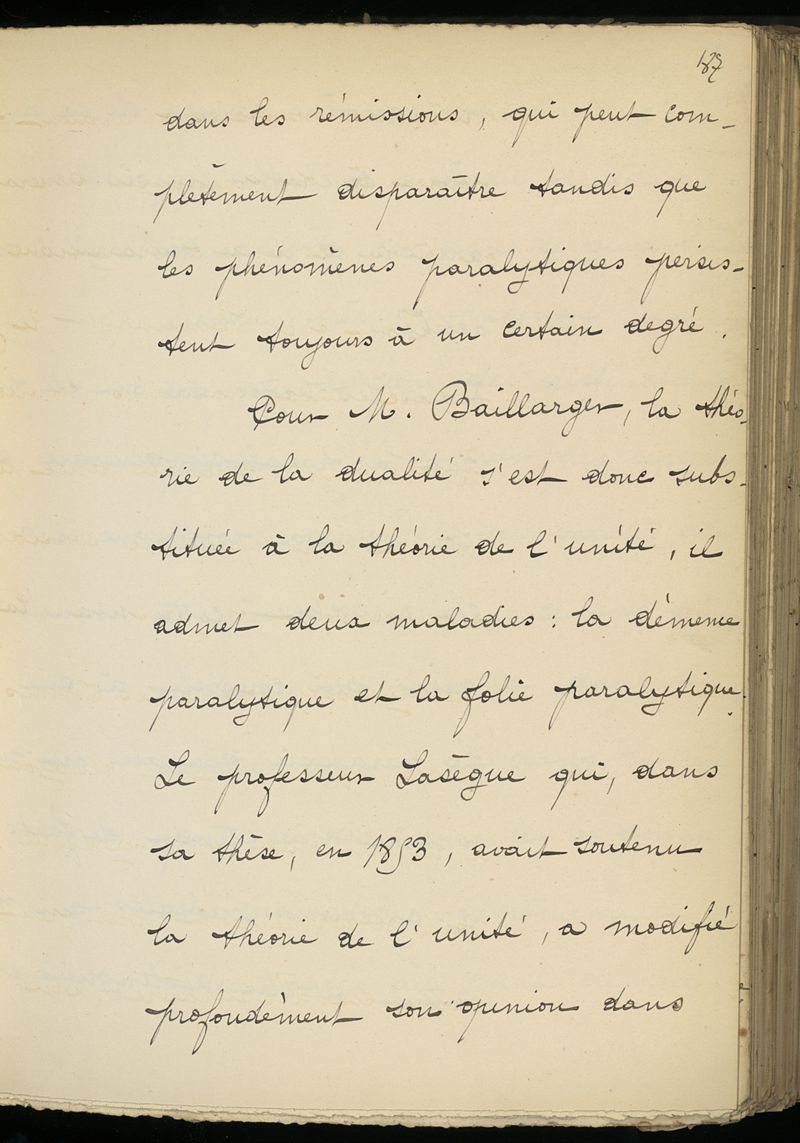 187
dans les rémissions, qui peut com-
plètement disparaître tandis que
les phénomènes paralytiques persis-
tent toujours à un certain degré.
Pour M. Baillarger, la théo-
rie de la dualité s'est donc subs-
tituée à la théorie de l'unité, il
admet deux maladies : la démence
paralytique et la folie paralytique.
Le professeur Lasègue qui, dans
sa thèse, en 1853, avait soutenu
la théorie de l'unité, a modifié
profondément son opinion dans